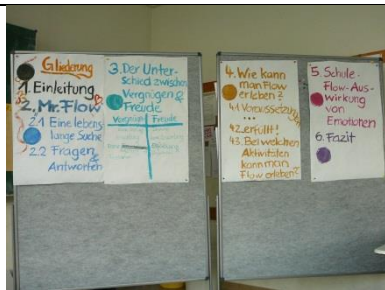 Gliederung
1. Einleitung
2. Mr. Flow
2.1 Eine lebens
lange Suche
2.2 Fragen &
Antworten
3. Der Unter-
schied zwischen
Vergnügen &
Freude
Vergnügen Freude
4. Wie kann
man Flow
erleben?
4.1 Voraussetzungen
...
4.2. erfüllt!
4.3. Bei welchen
Aktivitäten
kann man
Flow erleben?
5. Schule -
Flow-Aus-
wirkung
von
Emotionen
6. Fazit